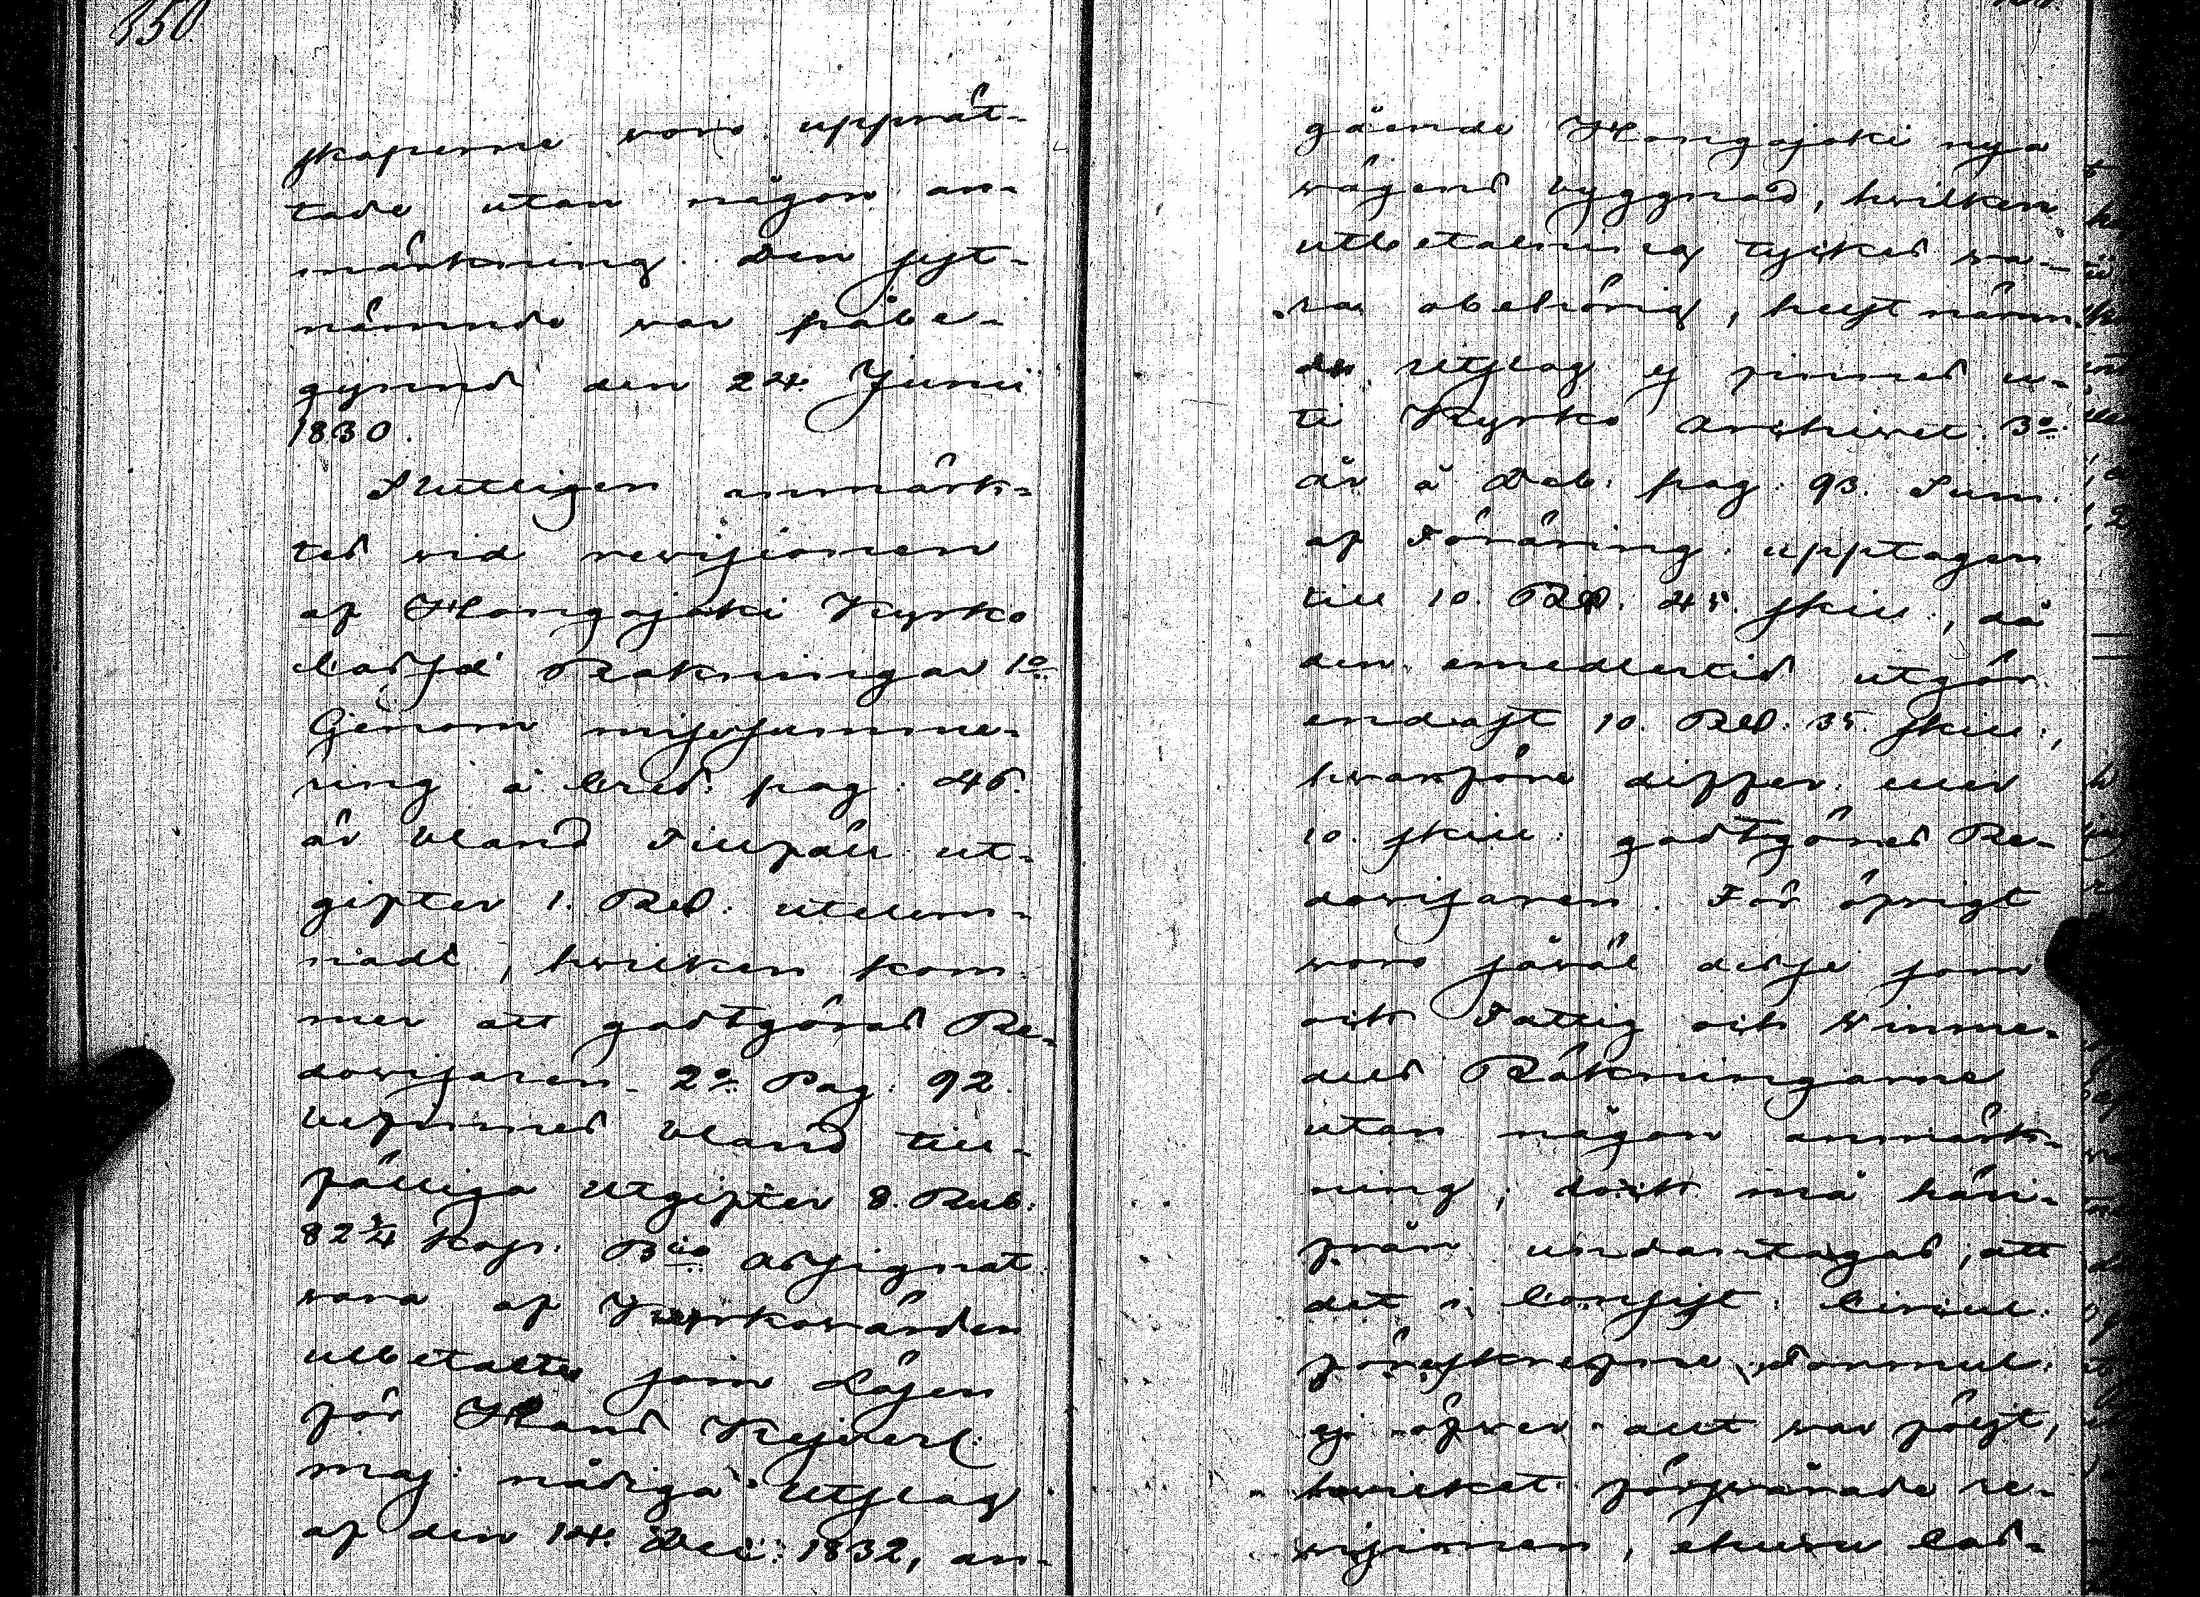 350.
skaperne voro upprät-
tade utan någon an-
märkning. Den sist-
nämnde var påbe-
gynnd den 24. Junii
1830.
Slutligen anmärk-
tes vid revisionen
af Hongojoki Kyrko
Cassæ Räkningar 1o
Genom missumme-
ring å Cred: pag: 46.
är bland Tillfäll: ut-
gifter 1. Rd: utelem-
nadt, hvilken kom-
mer att godtgöras Re-
dovisaren. 2o Pag: 92.
befinnes bland till-
fälliga utgifter 8. Rub:
82 3/4 Kop: Bco Assignat
vara af Kyrkovärden
utbetalte som Lösen
för Hans Kejserl:
Maj: nådiga Utslag
af den 14. Dec: 1832, an-
gående Hongojoki nya
vägens byggnad, hvilken
utbetalning tyckes va-
ra obehörig, helst nämn-
de Utslag ej finnes u-
ti Kyrko Archivet. 3o
är å Deb: pag: 93. Sum:
af Föräring: upptagen
till 10. Rd. 45. skill:, då
den emedlertid utgör
endast 10. Rd: 35 skill:,
hvarföre differ: eller
10. skill: godtgöres Re-
dovisaren. För öfrigt
voro såväl desse som
ock Fattig och Vinme-
dels Räkningarne
utan någon anmärk-
ning; dock må häri-
från undantagas, att
det i Consist: Circul:
föreskrefne Formul:
ej öfver allt var följt,
hvilket försvårade re-
visionen, ehuru Cas-